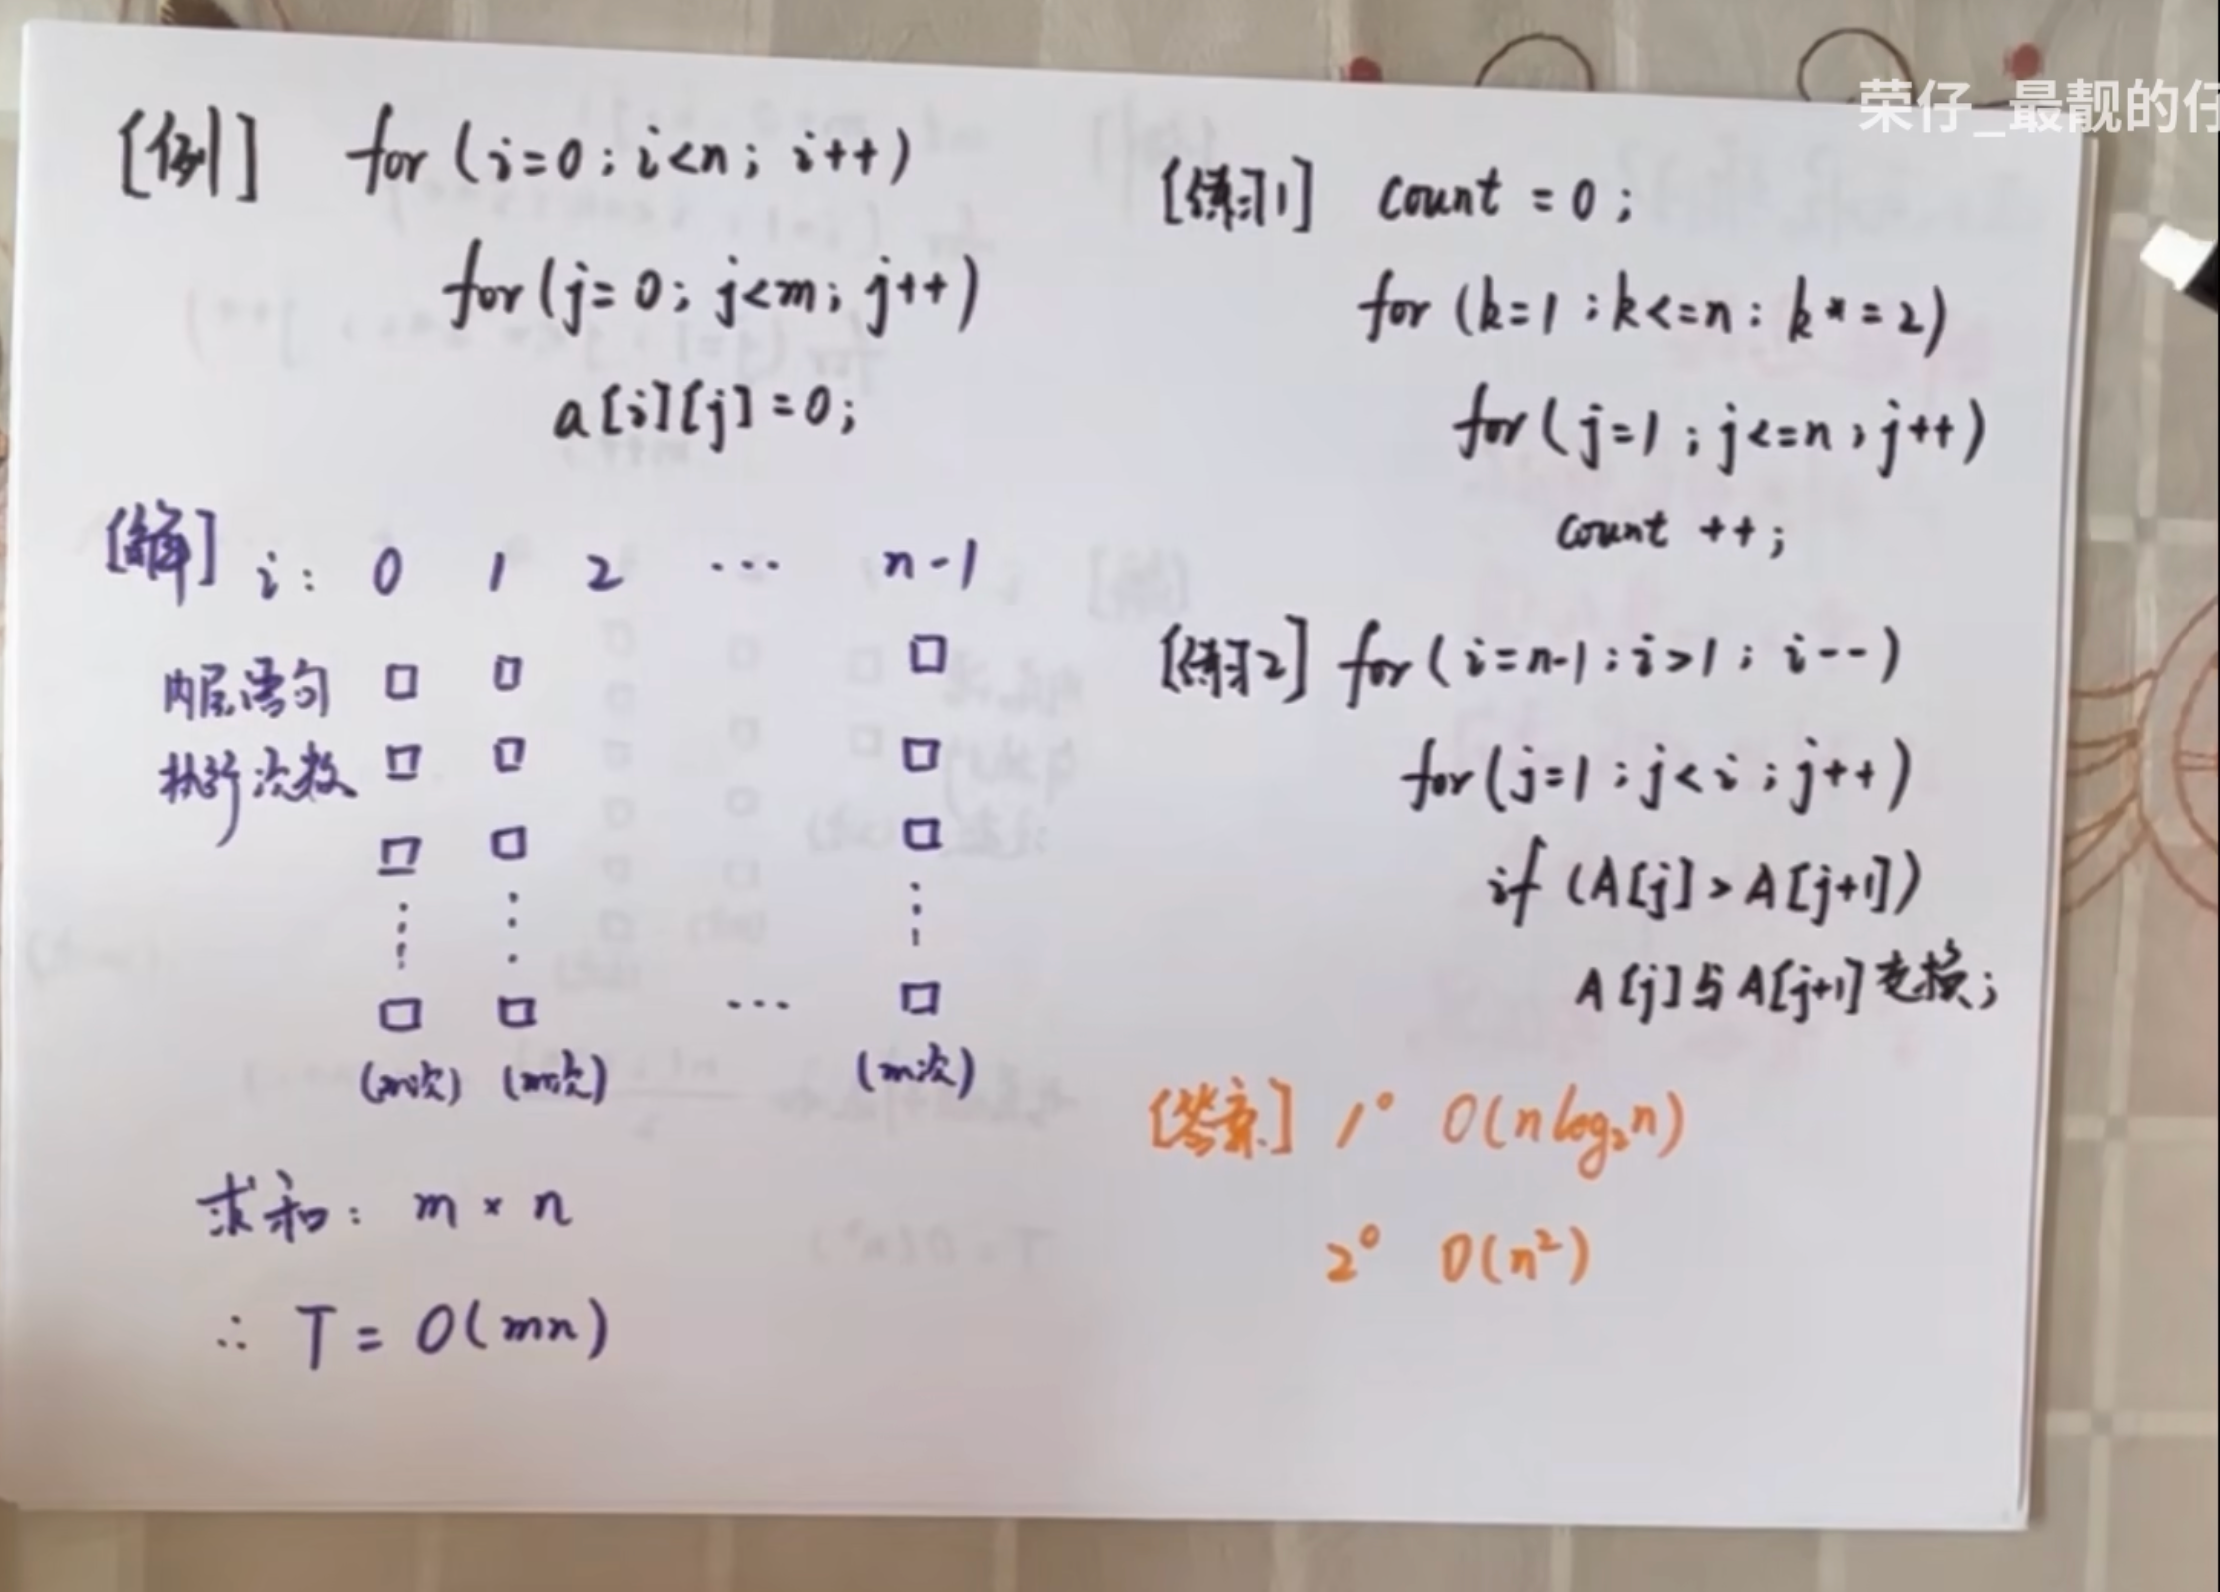 荣仔_最靓的仔
[例] for(i=0;i<n;i++)
for(j=0;j<m;j++)
a[i][j]=0;
[解] i: 0 1 2 ... n-1
内层语句
执行次数
(m次) (m次) ... (m次)
求和: m × n
∴ T = O(mn)
[练习1] count = 0;
for (k=1;k<=n;k*=2)
for(j=1;j<=n;j++)
count ++;
[练习2] for(i=n-1;i>1;i--)
for(j=1;j<i;j++)
if (A[j]>A[j+1])
A[j]与A[j+1]交换;
[答案] 1° O(nlog₂n)
2° O(n²)